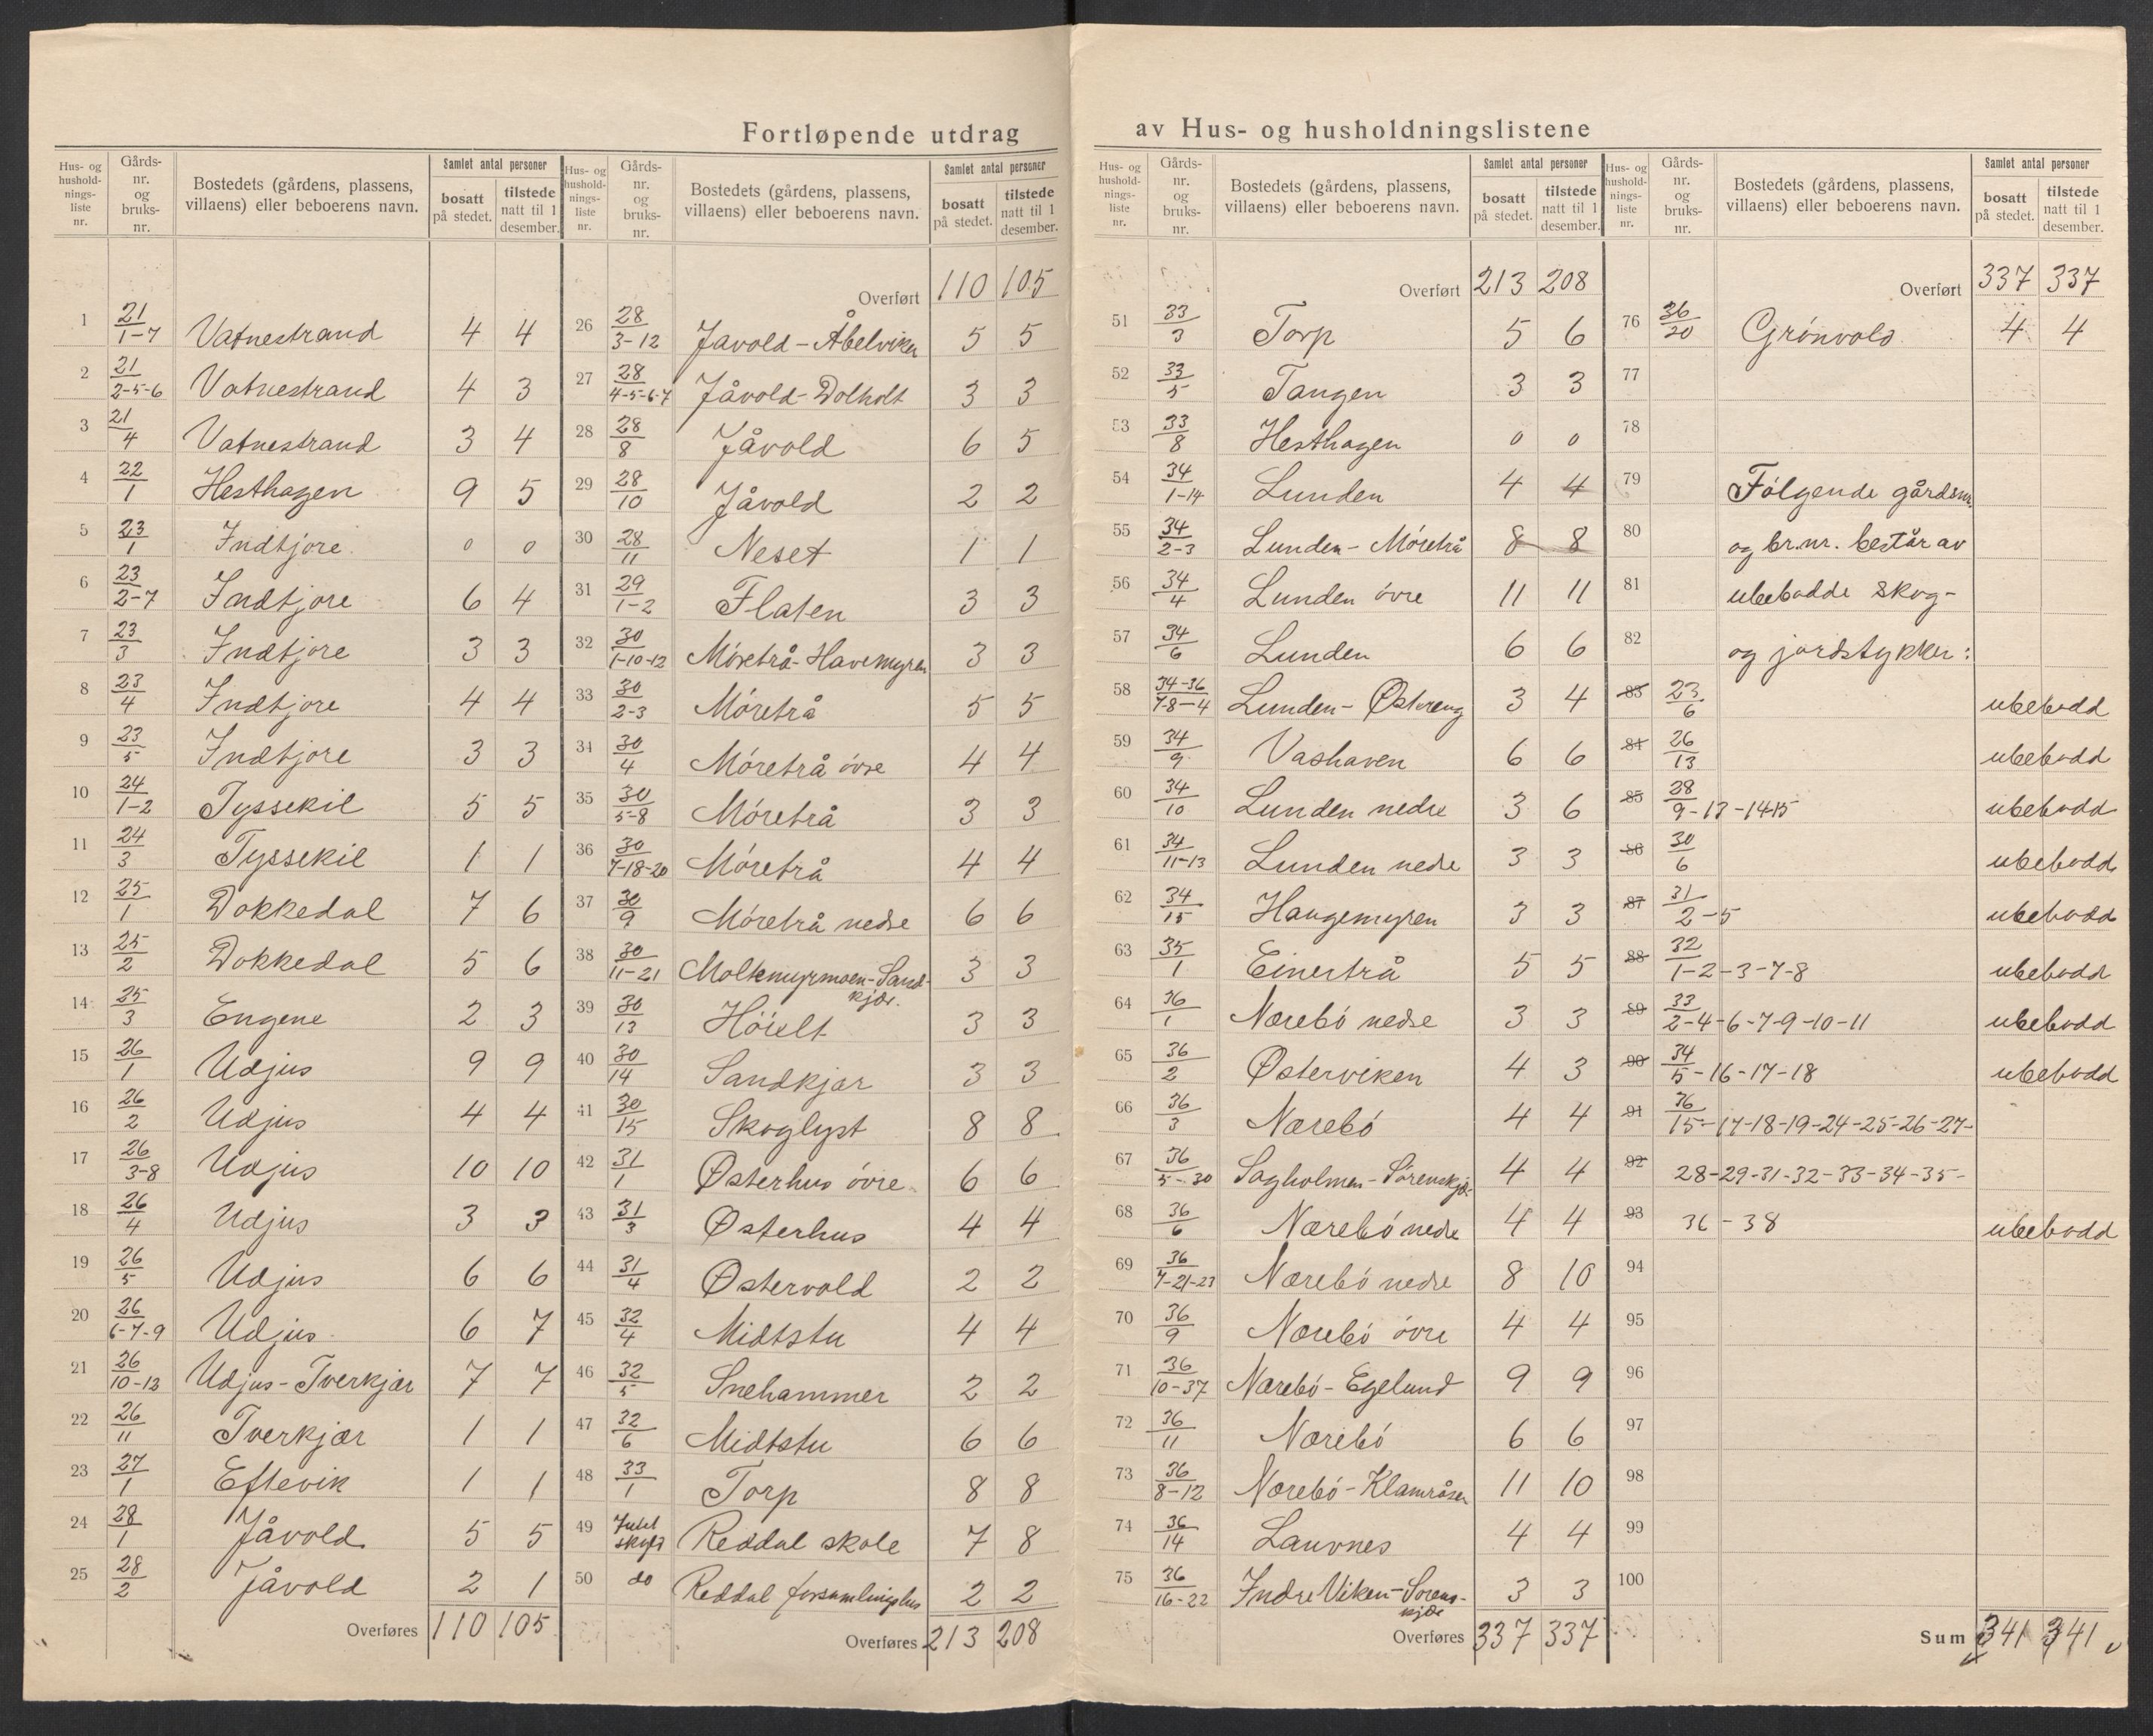 Fortløpende utdrag
Hus- og husholdnings-liste nr. | Gårds-nr. og bruks-nr. | Bostedets (gårdens, plassens, villaens) eller beboerens navn. | Samlet antal personer | bosatt på stedet. | tilstede natt til 1 desember.
1 21/1-7 Vatnestrand 4 4
2 21/2-5-6 Vatnestrand 4 3
3 21/4 Vatnestrand 3 4
4 22/1 Hesthagen 9 5
5 23/1 Indtjore 0 0
6 23/2-7 Indtjore 6 4
7 23/3 Indtjore 3 3
8 23/4 Indtjore 4 4
9 23/5 Indtjore 3 3
10 24/1-2 Tyssekil 5 5
11 24/3 Tyssekil 1 1
12 25/1 Dokkedal 7 6
13 25/2 Dokkedal 5 6
14 25/3 Engene 2 3
15 26/1 Udjus 9 9
16 26/2 Udjus 4 4
17 26/3-8 Udjus 10 10
18 26/4 Udjus 3 3
19 26/5 Udjus 6 6
20 26/6-7-9 Udjus 6 7
21 26/10-12 Udjus-Tverkjær 7 7
22 26/11 Tverkjær 1 1
23 27/1 Eftevik 1 1
24 28/1 Jåvold 5 5
25 28/2 Jåvold 2 1
Overføres 110 105
Hus- og husholdnings-liste nr. | Gårds-nr. og bruks-nr. | Bostedets (gårdens, plassens, villaens) eller beboerens navn. | Samlet antal personer | bosatt på stedet. | tilstede natt til 1 desember.
Overført 110 105
26 28/3-12 Javold-Åbelviken 5 5
27 28/4-5-6-7 Jåvold-Dolholt 3 3
28 28/8 Jåvold 6 5
29 28/10 Jåvold 2 2
30 28/11 Neset 1 1
31 29/1-2 Flaten 3 3
32 30/1-10-12 Móretrå-Havemyren 3 3
33 30/2-3 Móretrå 5 5
34 30/4 Móretrå óvre 4 4
35 30/5-8 Móretrå 3 3
36 30/7-18-20 Móretrå 4 4
37 30/9 Móretrå nedre 6 6
38 30/11-21 Moltemyrmoen-Sand-kjær. 3 3
39 30/13 Hóielt 3 3
40 30/14 Sandkjær 3 3
41 30/15 Skoglyst 8 8
42 31/1 Østerhus óvre 6 6
43 31/3 Østerhus 4 4
44 31/4 Østervold 2 2
45 32/4 Midtstu 4 4
46 32/5 Snehammer 2 2
47 32/6 Midtstu 6 6
48 33/1 Torp 8 8
49 Reddal skole 7 8
50 do Reddal forsamlingshus 2 2
Overføres 213 208
av Hus- og husholdningslistene
Hus- og husholdnings-liste nr. | Gårds-nr. og bruks-nr. | Bostedets (gårdens, plassens, villaens) eller beboerens navn. | Samlet antal personer | bosatt på stedet. | tilstede natt til 1 desember.
Overført 213 208
51 33/3 Torp 5 6
52 33/5 Tangen 3 3
53 33/8 Hesthagen 0 0
54 34/1-14 Lunden 4 4
55 34/2-3 Lunden-Móretrå 8 8
56 34/4 Lunden óvre 11 11
57 34/6 Lunden 6 6
58 34-36/7-8-4 Lunden-Østereng 3 4
59 34/9 Vashaven 6 6
60 34/10 Lunden nedre 3 6
61 34/11-13 Lunden nedre 3 3
62 34/15 Haugemyren 3 3
63 35/1 Einertrå 5 5
64 36/1 Nærebó nedre 3 3
65 36/2 Østerviken 4 3
66 36/3 Nærebó 4 4
67 36/5-30 Sagholmen-Sórenskjæ. 4 4
68 36/6 Nærebó nedre 4 4
69 36/7-21-23 Nærebó nedre 8 10
70 36/9 Nærebó óvre 4 4
71 36/10-37 Nærebó-Egelund 9 9
72 36/11 Nærebó 6 6
73 36/8-12 Nærebó-Klamråsen 11 10
74 36/14 Lauvnes 4 4
75 36/16-22 Indre Viken-Sórens-kjær 3 3
Overføres 337 337
Hus- og husholdnings-liste nr. | Gårds-nr. og bruks-nr. | Bostedets (gårdens, plassens, villaens) eller beboerens navn. | Samlet antal personer | bosatt på stedet. | tilstede natt til 1 desember.
Overført 337 337
76 36/20 Grónvold 4 4
77
78
79 Fólgende gårdsnr.
80 og br.nr. består av
81 ubebodde skog-
82 og jordstykker:
83 23/6 ubebodd
84 26/13 ubebodd
85 28/9-13-14-15 ubebodd
86 30/6 ubebodd
87 31/2-5 ubebodd
88 32/1-2-3-7-8 ubebodd
89 33/2-4-6-7-9-10-11 ubebodd
90 34/5-16-17-18 ubebodd
91 36/15-17-18-19-24-25-26-27-
92 28-29-31-32-33-34-35-
93 36-38 ubebodd
94
95
96
97
98
99
100
Sum 341 341